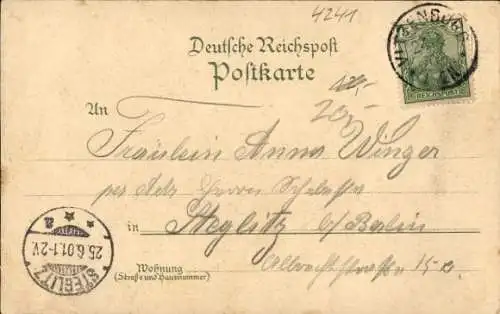 4241
VITZENBURG
REICHSPOST
Deutsche Reichspost
Postkarte
20,-
An
Fräulein Anna Winger
per Adr. Herrn
in Steglitz b/Berlin
Albrechtstrasse 15a
Wohnung
(Straße und Hausnummer)
STEGLITZ
25.6.01.1-2V.
* * a